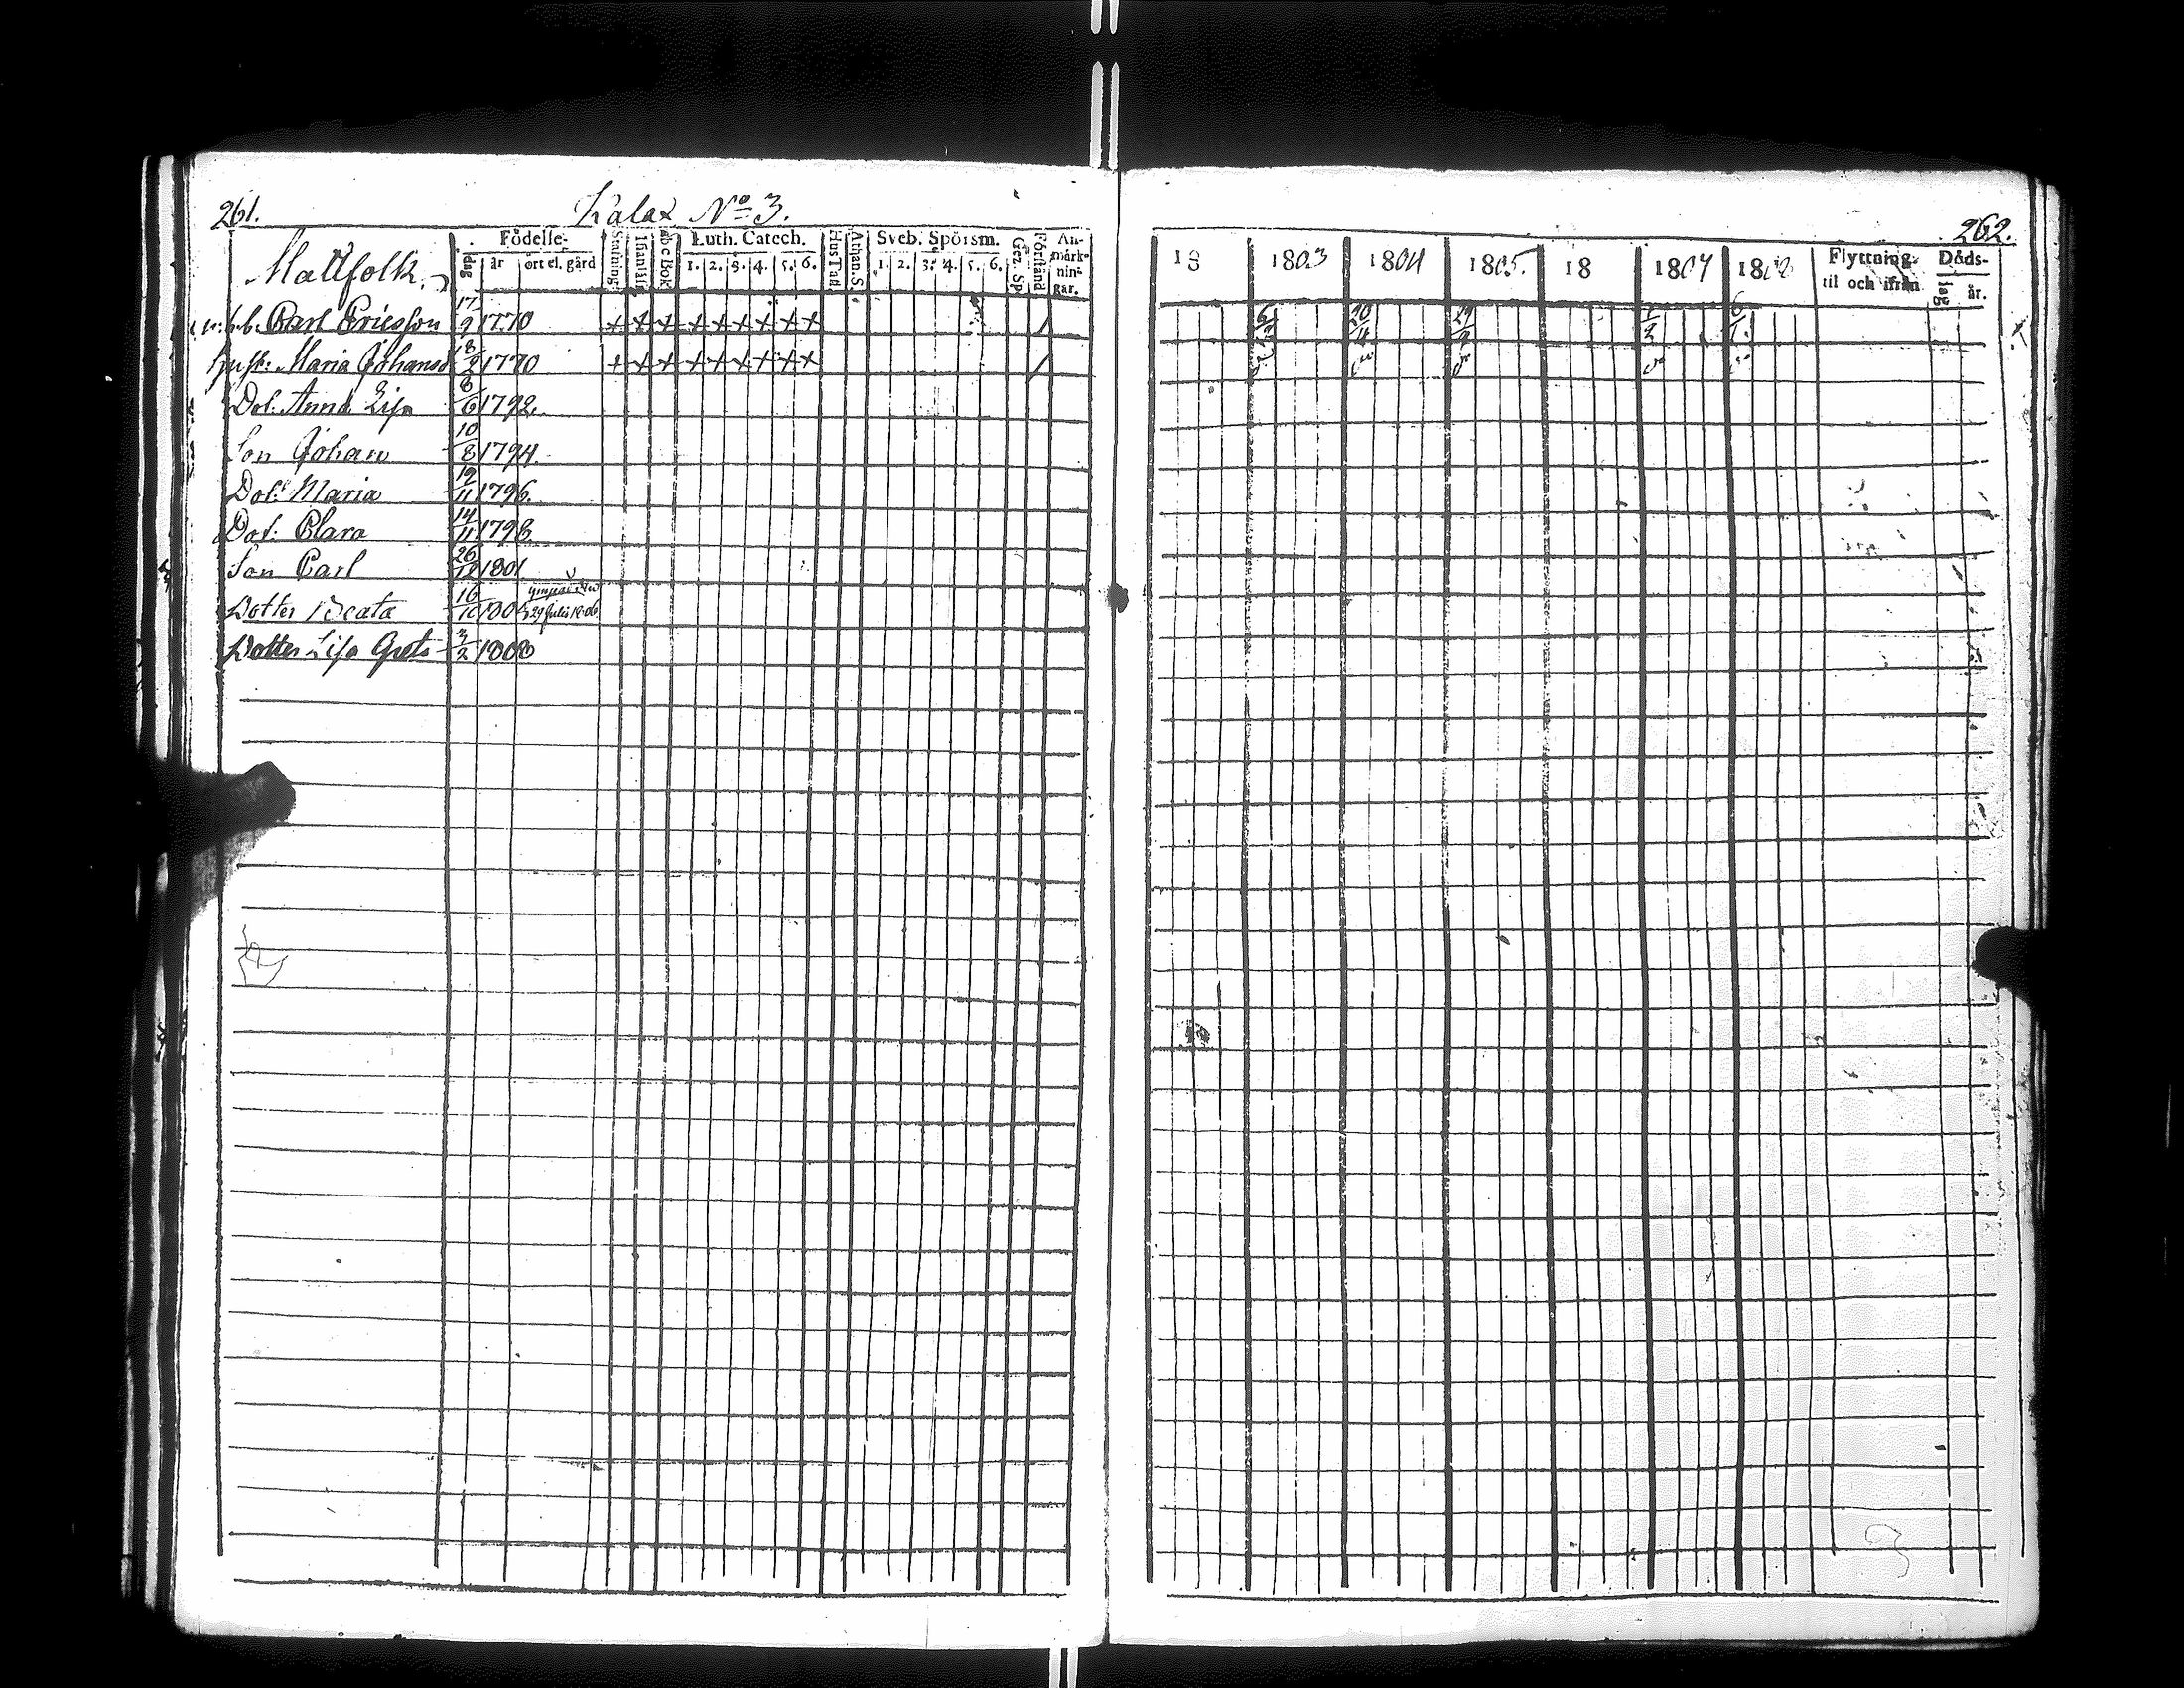 261.
Kalax No 3.
Mattfolk.
dag
Födelse-
år
ort el. gård
Stafning
Innanläsn
ab c Bok
Luth. Catech.
1. 2. 3. 4. 5. 6.
Hus Tafl
Athan. S.
Sveb. Spörsm.
1. 2. 3. 4. 5. 6.
Gez. Sp
Förstånd
An-
märk-
nin-
gar.
Carl Ericsson 17/9 1770 + + + + + + + + + /
Hustr: Maria Johansd 18/2 1770 + + + + + + + + + /
Dot: Anna Lisa 8/6 1792.
Son Johan 10/8 1794.
Dot: Maria 12/11 1796.
Dot: Clara 14/11 1798.
Son Carl 26/12 1801.
Dotter Beata 16/10 1805 29 Julii 1806
Dotter Lisa Greta 3/2 1808
262.
18 1803 1804 1805. 18 1807 1808
Flyttning
til och ifrån
Döds-
dag
år.
20/4